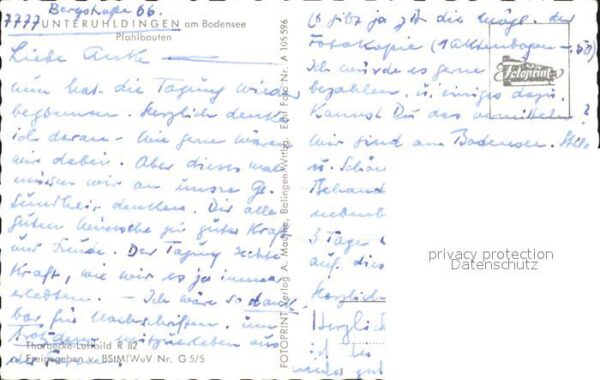 Bergstraße 66.
7777 UNTERUHLDINGEN am Bodensee
Pfahlbauten
Liebe Anke
nun hat die Tagung wieder
begonnen. Herzlich denke
ich daran – wie gerne wären
wir dabei. Aber dieses mal
müssen wir an unsre Ge-
sundheit denken. Dir alle
guten Wünsche für gutes Kraft
und Freude. Der Tagung rechte
Kraft, wie wir es ja immer
erlebten. – Ich wäre so dank-
bar für Nachschriften, um
trotzdem mitzuerleben aus
der Ferne.
Thorbecke-Luftbild R 82
Freigegeben v. BStMfWuV Nr. G 5/5
FOTOPRINT Verlag A. Mauthe, Balingen/Wttbg. Echt Foto Nr. A 105 596
Es gibt ja jetzt die Mögl. der
Fotokopie (1 Aktenbogen –.50)
Ich würde es gerne
bezahlen u. einiges dazu.
Kannst Du das vermitteln?
Wir sind am Bodensee.
u. Schön
Behand
nebenb
3 Tage
auf dies
Herzlich
Herzlich
Fotoprint
privacy protection
Datenschutz